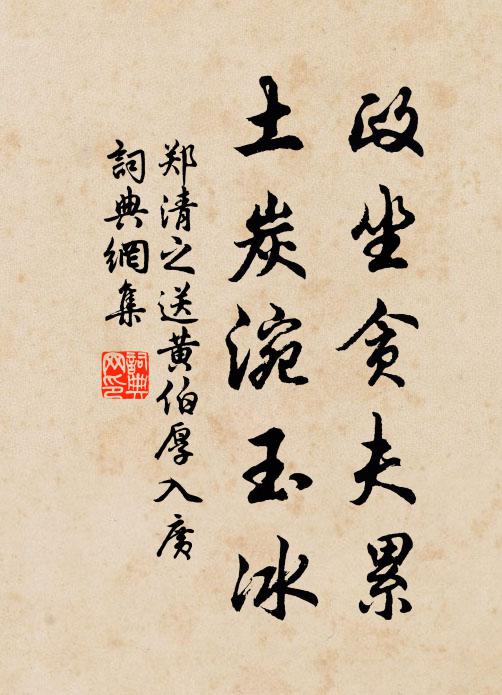 政坐贪夫累
土炭涴玉冰
郑清之送黄伯厚入广
詞典網集
詞典网印